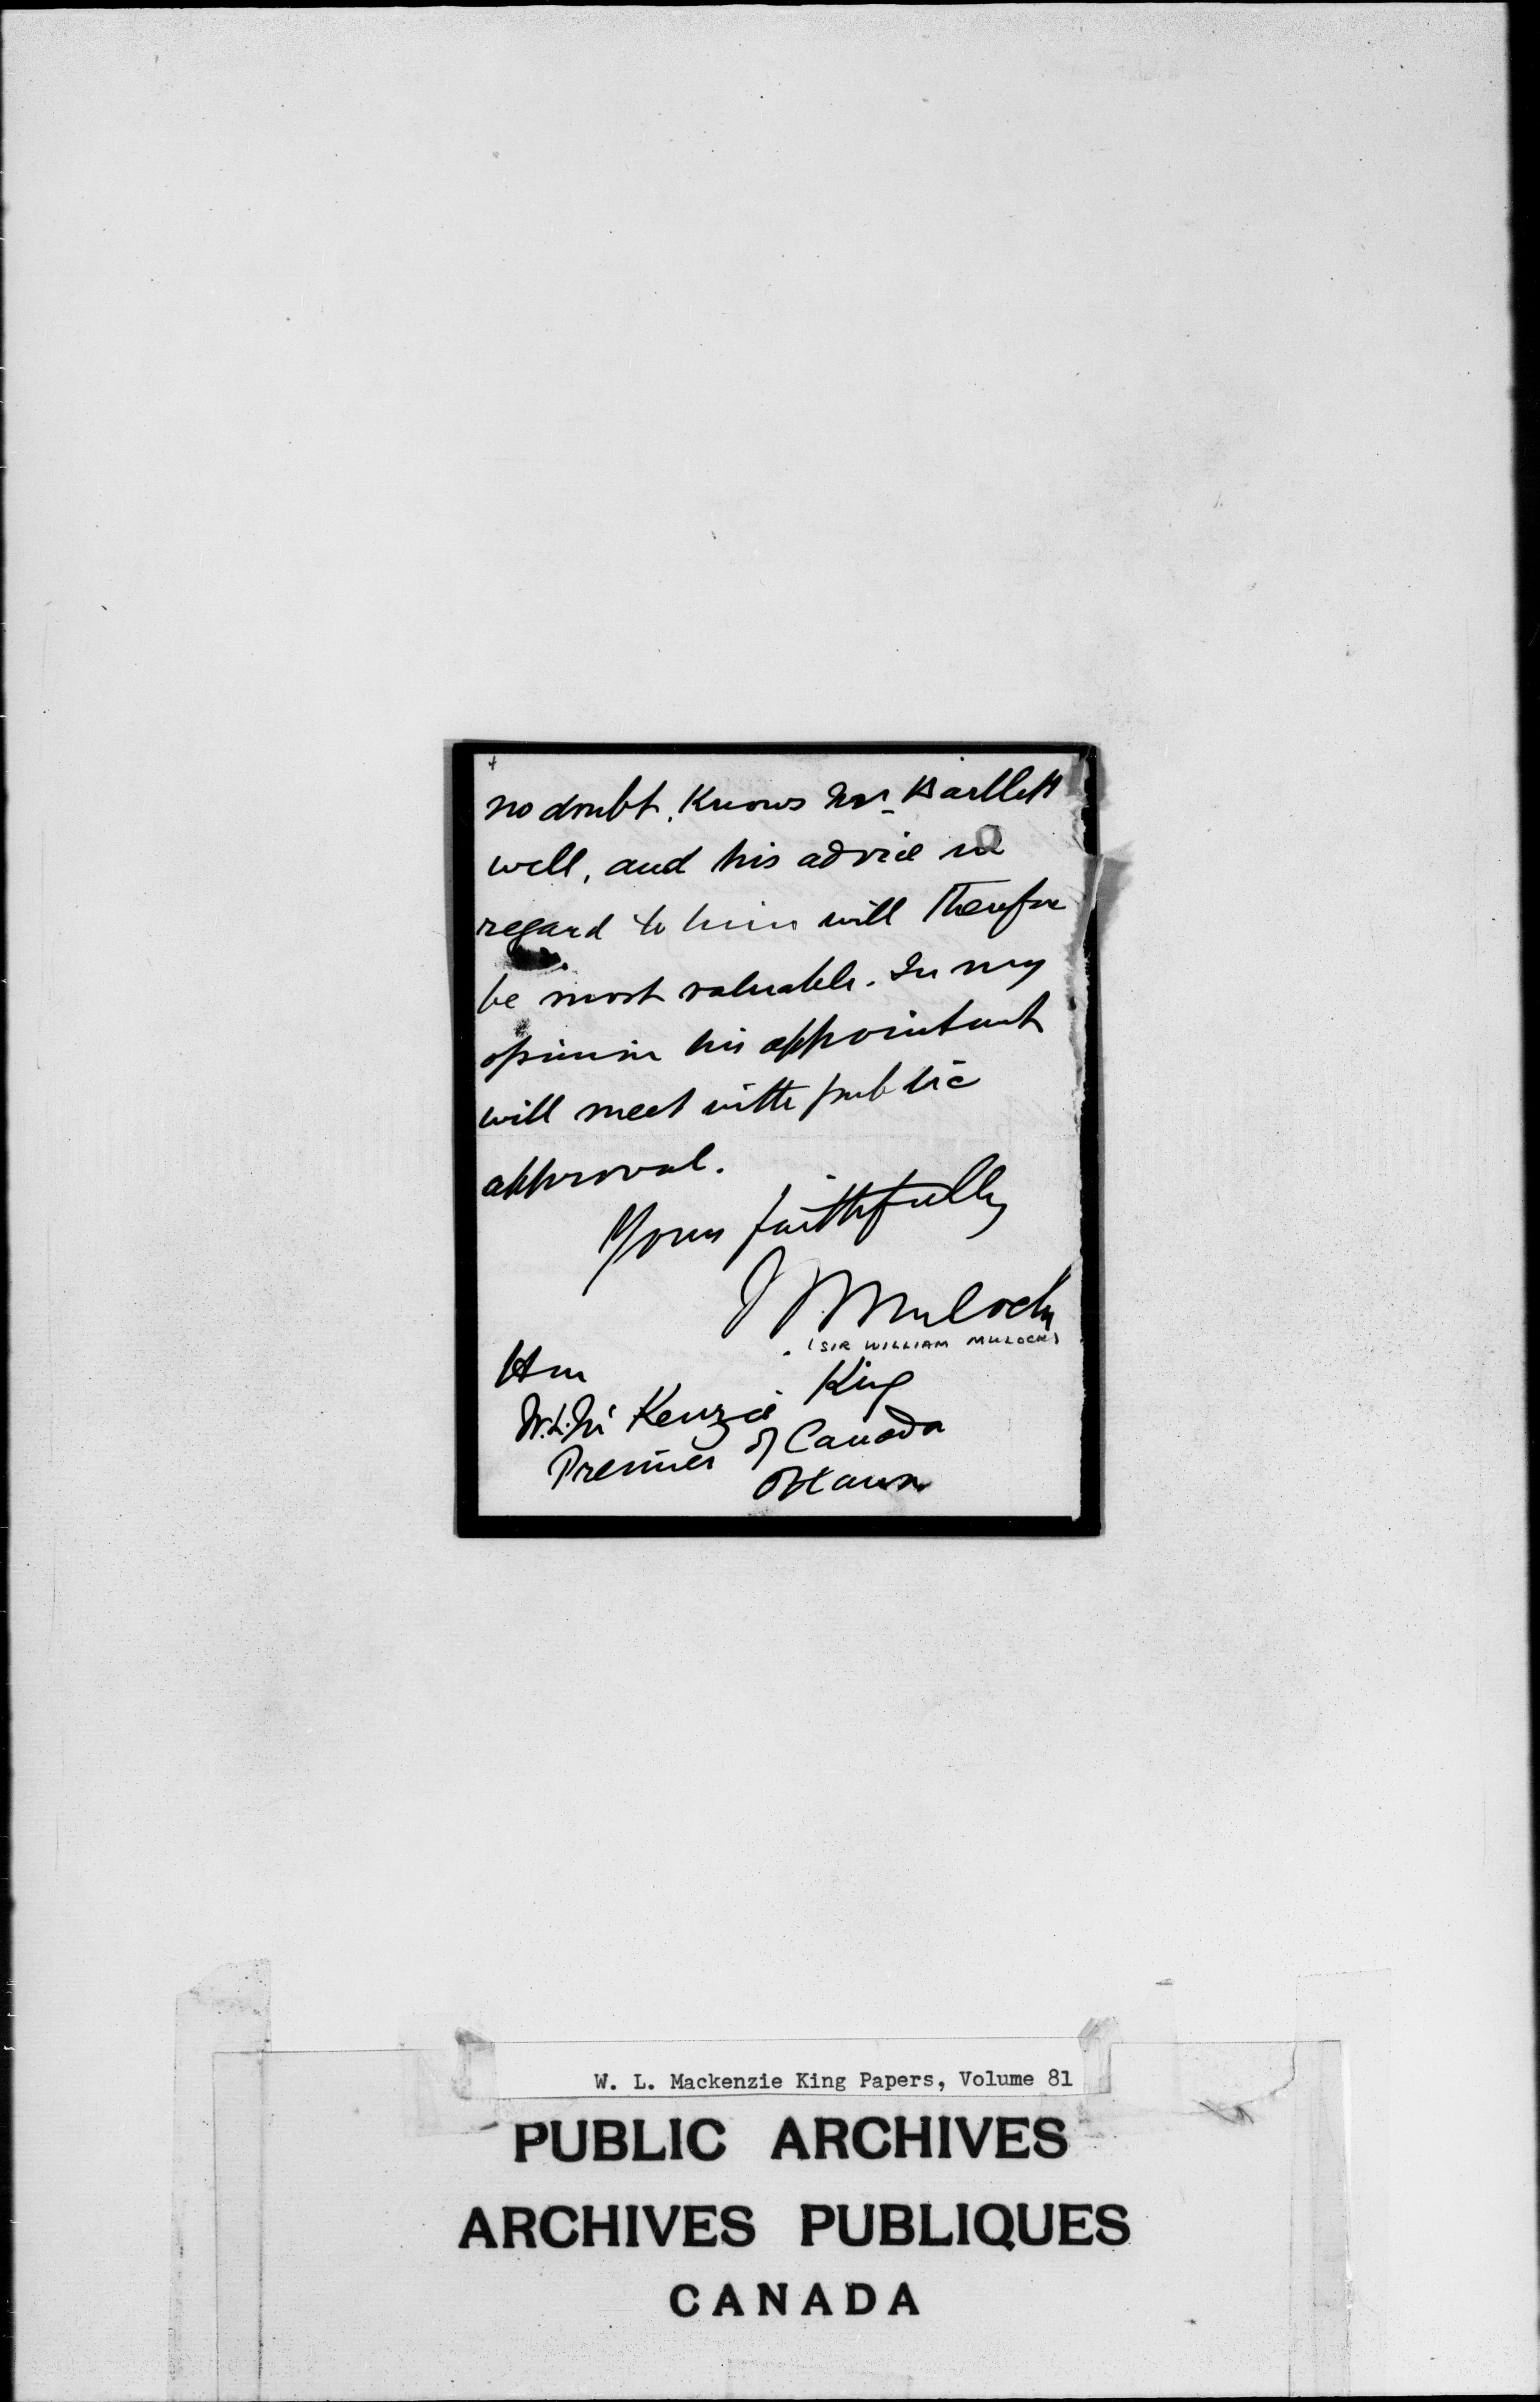 no doubt, knows Mr Bartlett
well, and his advice in
regard to him will therefore
be most valuable. In my
opinion his appointment
will meet with public
approval.
Yours faithfully
W Mulock
(SIR WILLIAM MULOCK)
Hon
W.L. Mc Kenzie King
Premier of Canada
Ottawa
W. L. Mackenzie King Papers, Volume 81
PUBLIC ARCHIVES
ARCHIVES PUBLIQUES
CANADA